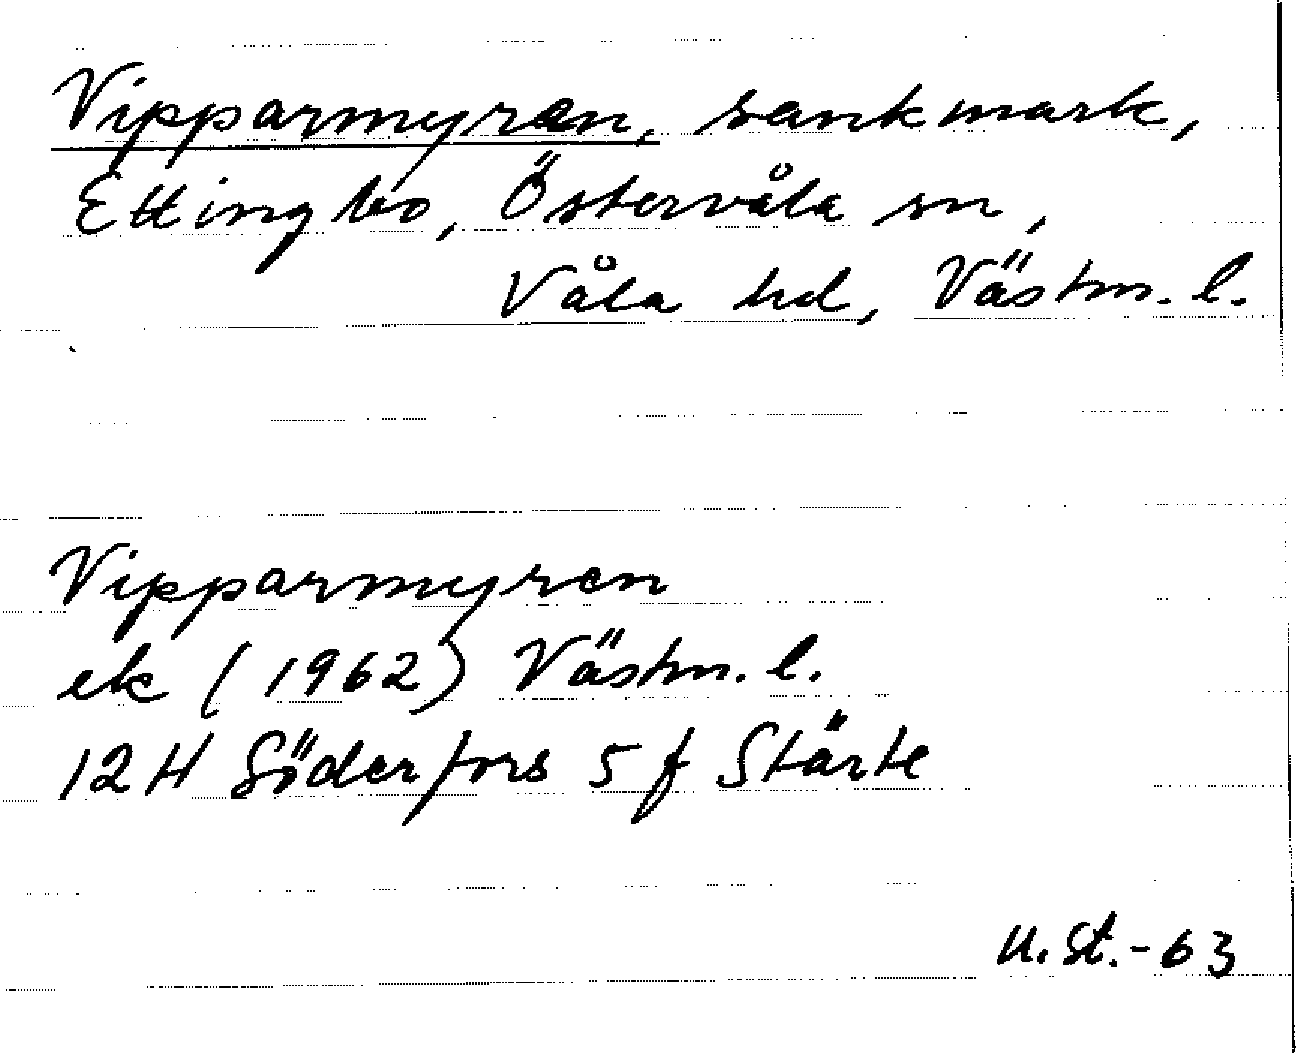 Vipparmyren, sankmark,
Ettingbo, Östervåla sn,
Våla hd, Västm. l.
Vipparmyren
ek (1962) Västm. l.
12H Söderfors 5 f Stärte
U. St. - 63